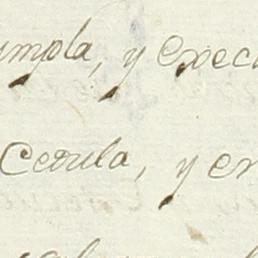 umpla, y exec
Cedula, y en